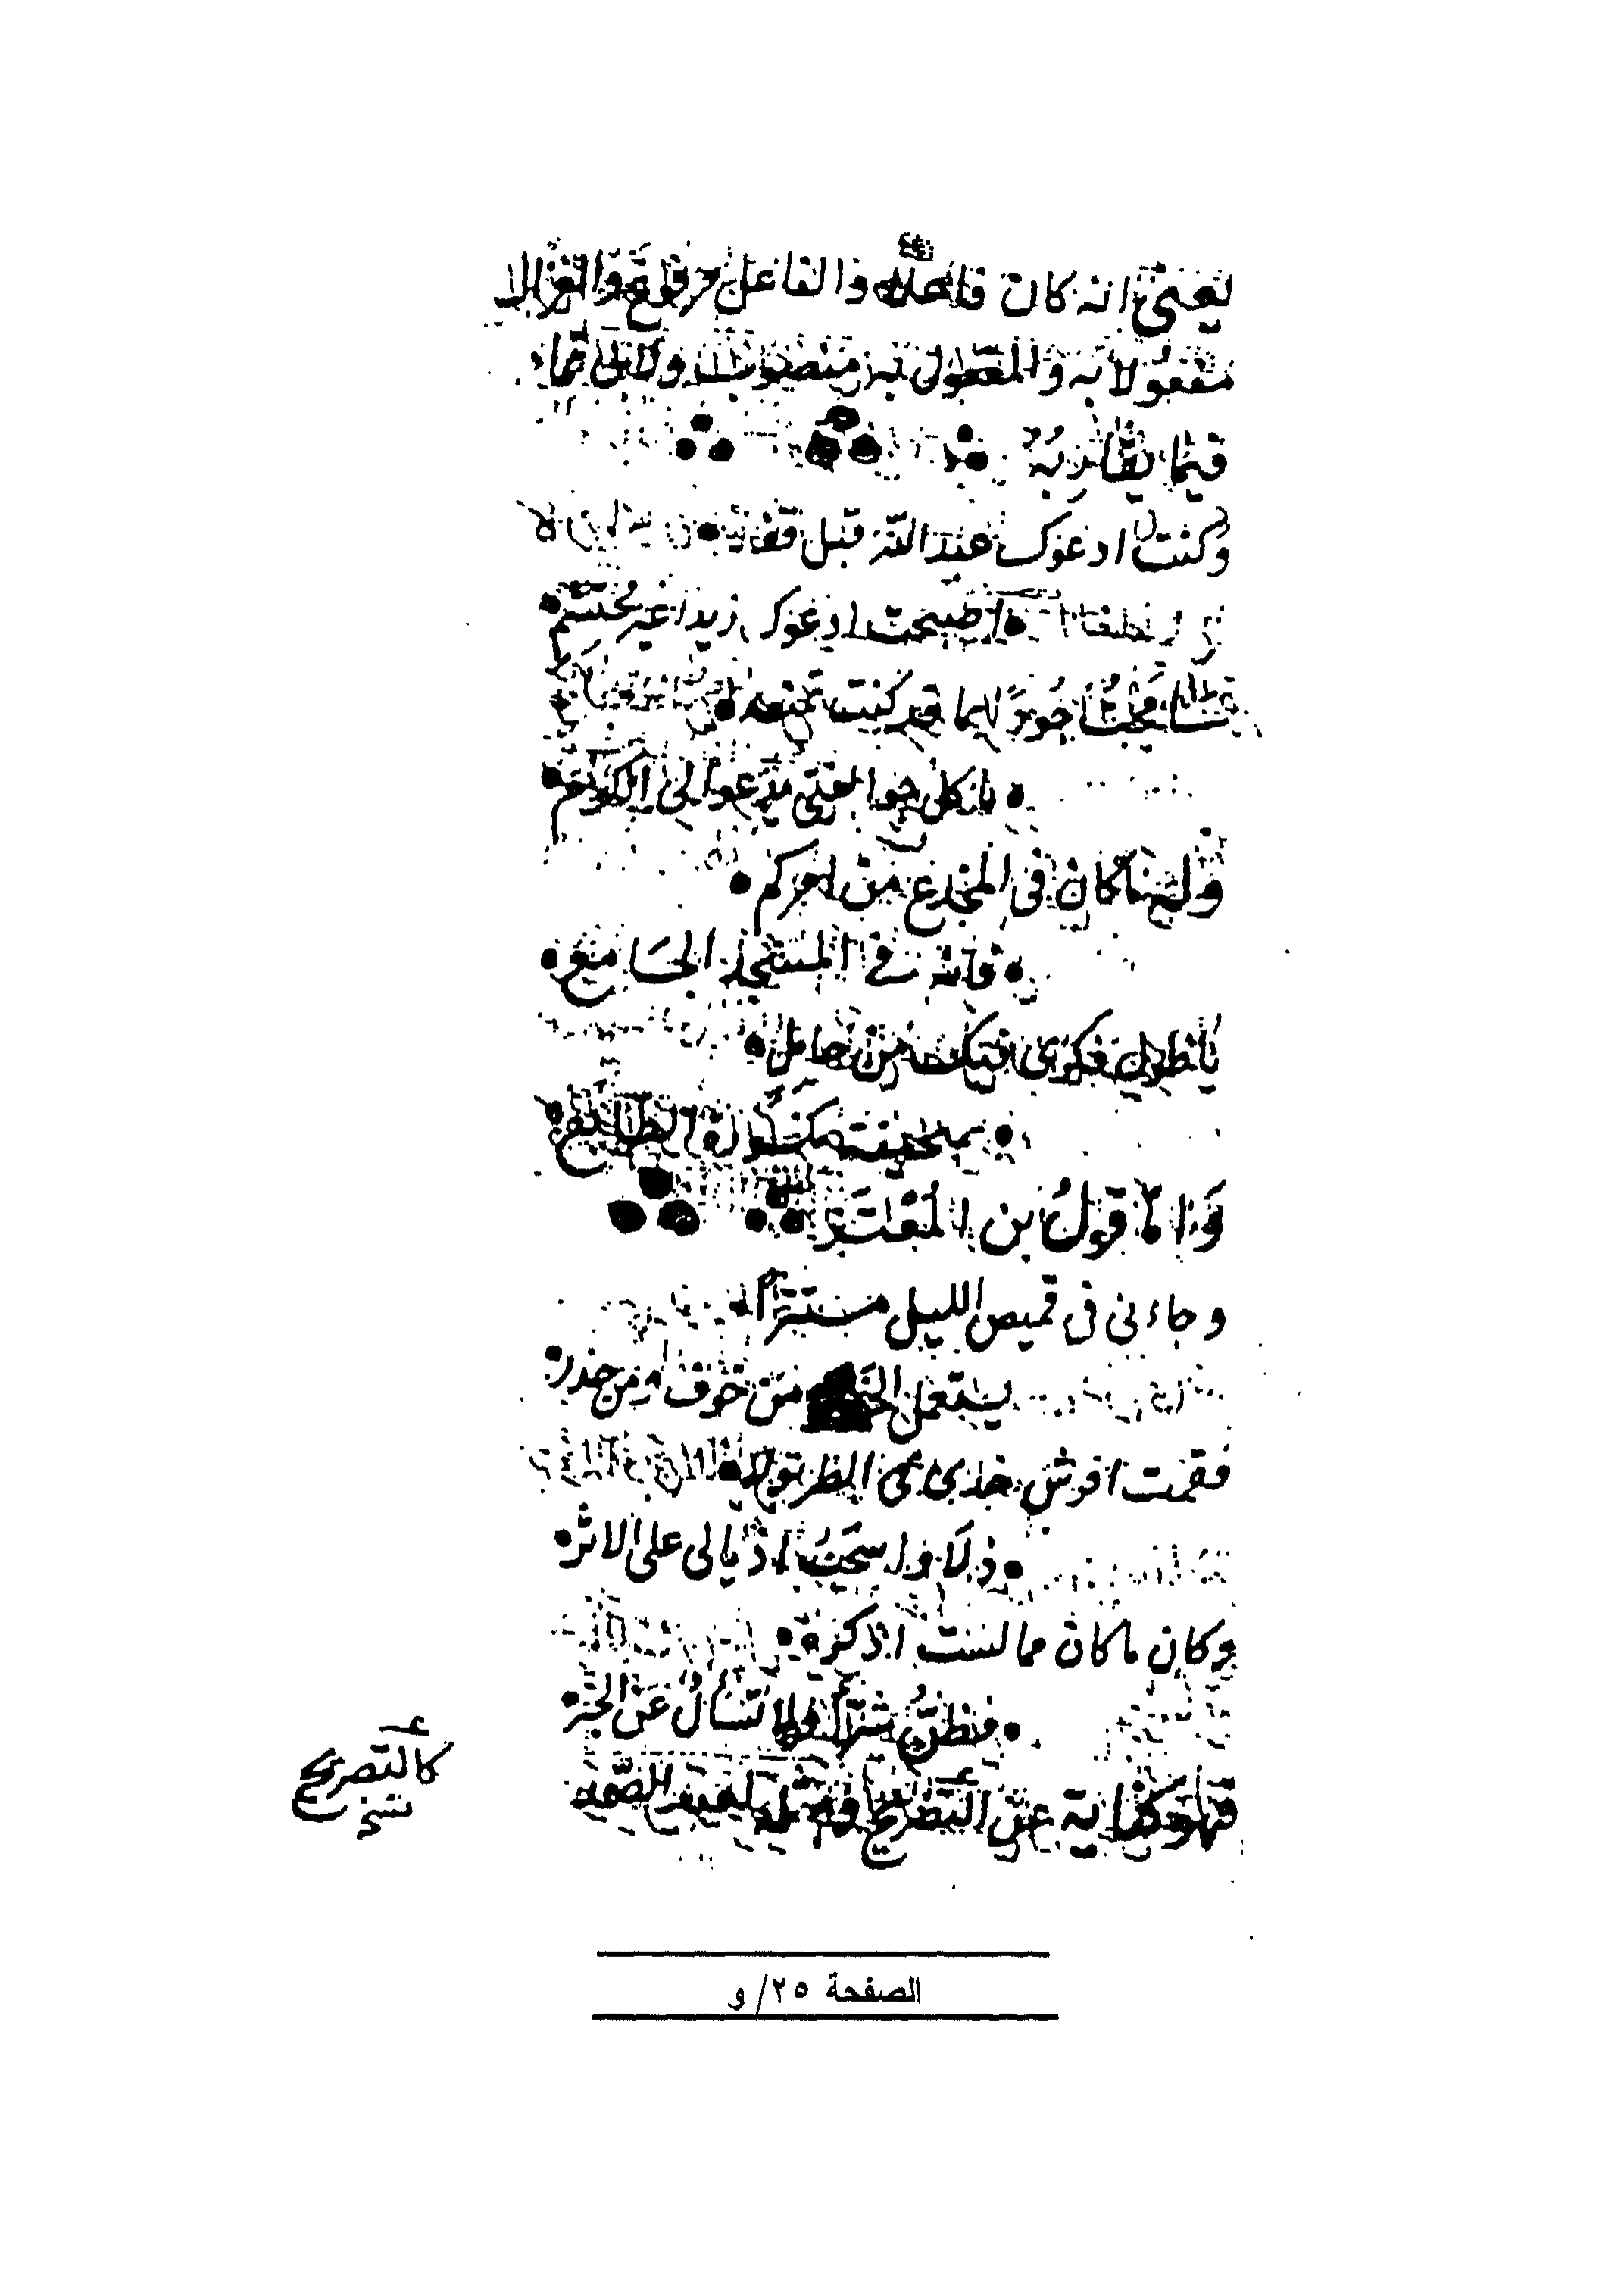 يعني انه كان فاعلا والفاعل مرفوع والغزالا
مفعولا به والمفعول به منصوب ولابي تمام
فيما يقاربه
وكنت ادعوك عبد الله قبل فقد
اصبحت ادعوك زيدا غير محتشم
جودًا بما قد كنت تمنعه
ما كل جود الفتى يدعو الى الكرم
كان في المخدع من امركم
فانه في المسجد الجامع
يا طول فكري فيك من حامل
صحيفة مكسورة الطابع
وَامّا قولُ بن المُعْتَز
وجاءني في قميص الليل مستترا
يستعمل الخطو من خوف ومن حذر
فقمت افرش خدي في الطريق له
ذلا واسحبُ اذيالي على الاثر
وكان ما كان مما لست اذكره
فظنُّ شرا ولا تسأل عن الخبر
فهو كناية عن التصريح ومثله
كالتصريح
نسخ
الصفحة ٢٥/و